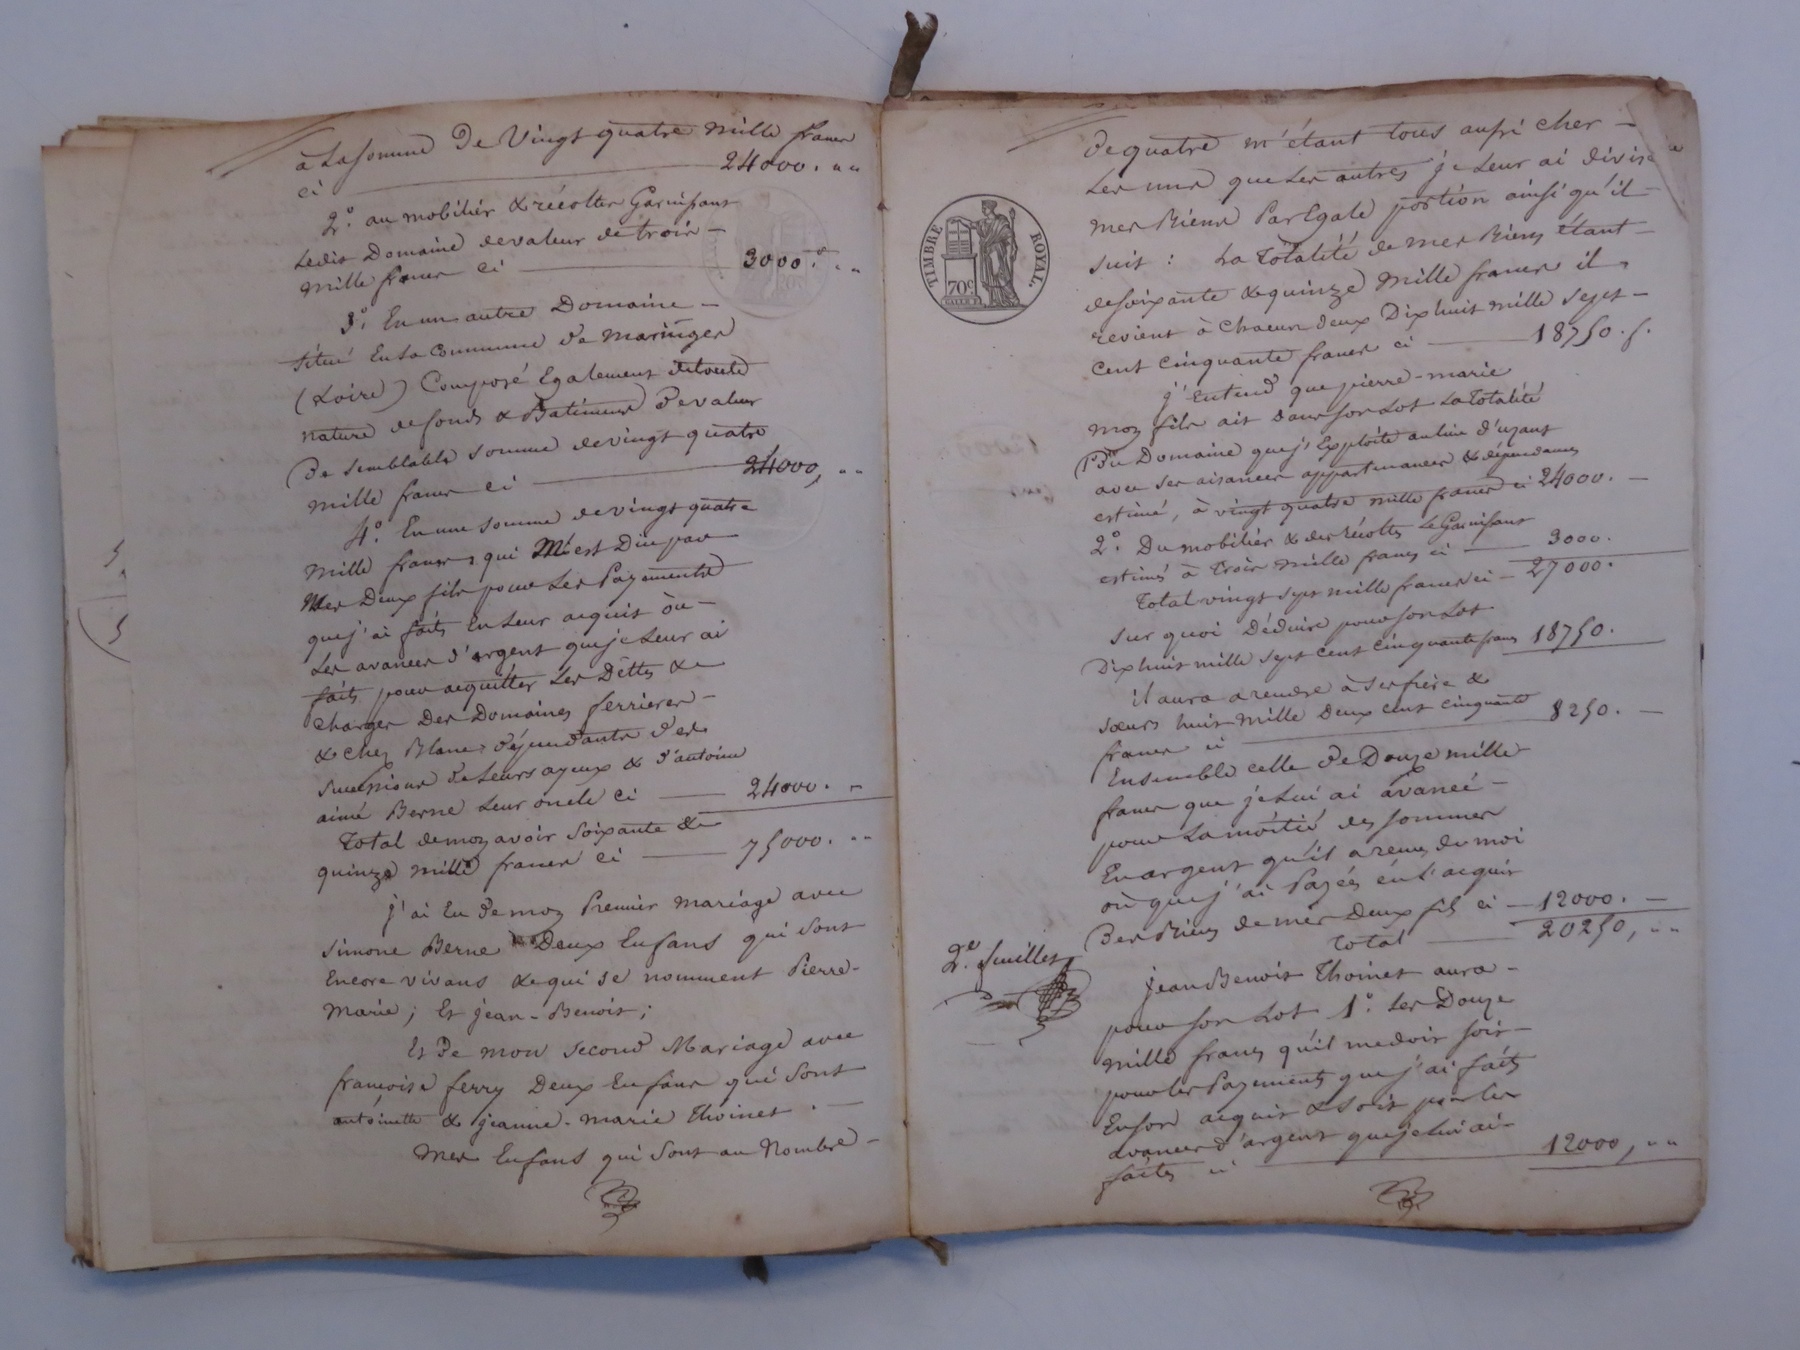 à La somme De Vingt quatre mille francs
ci 24000. ""
2°. au mobilier & récoltes Garnissant
Ledit Domaine devaleur de trois –
Mille francs ci 3000. ""
3°. En un autre Domaine –
situé En La Commune de Maringes
(Loire) Composé Egalement detoute
nature de fonds & Batiments De valeur
De semblable somme de vingt quatre
mille francs ci 24000, ""
4°. En une somme de vingt quatre
mille francs qui M'est Due par
Mes Deux fils pour Les Payements
que j'ai faits En Leur acquit ou –
Les avances d'argent que je Leur ai
faits pour acquitter Les Dettes &
charges Des Domaines ferrieres –
& chez Blanc dépendants des
successions de Leurs ayeux & d'antoine
aimé Berne Leur oncle ci 24000. "
Total de mon avoir Soixante &
quinze mille francs ci 75000. ""
j'ai Eu De mon Premier mariage avec
Simone Berne Deux Enfans qui sont
Encore vivans & qui se nomment Pierre-
Marie; Et jean-Benoit;
Et De mon second Mariage avec
françoise ferry Deux Enfans qui sont
antoinette & jeanne-marie Thoinet. –
Mes Enfans qui sont au Nombre –
De quatre m'étant tous aussi cher –
Les uns que Les autres je Leur ai divisé
mes Biens Par Egale portion ainsi qu'il –
suit : La Totalité de mes Biens étant –
de soixante & quinze mille francs il
revient à chacun deux Dix huit mille sept –
cent cinquante francs ci 18750. f.
j'Entend que pierre-marie
mon fils ait Dans son Lot La Totalité
1° Du Domaine que j'Exploite au lieu d'uzant
avec ses aisances appartenances & dépendances
estimé, à vingt quatre mille francs ci 24000. –
2°. Du mobilier & des récoltes Le Garnissant
estimés à Trois mille francs ci 3000.
Total vingt sept mille francs ci – 27000.
Sur quoi Déduire pour son Lot
Dix huit mille sept cent cinquante francs 18750.
il aura a rendre à ses frère &
sœurs huit mille Deux cent cinquante
francs ci 8250. –
Ensemble celle De Douze mille
francs que je Lui ai avancé –
pour La moitié des sommes
En argent qu'il a reçu de moi
ou que j'ai Payées en L'acquit
Des Biens de mes Deux fils ci – 12000. –
Total 20250, ""
2e. feuillet
TIMBRE ROYAL.
70c
jean Benoit Thoinet aura –
pour son Lot 1°. Les Douze
mille francs qu'il me doit soit –
pour les Payements que j'ai faits
En son acquit & soit par les
avances d'argent que je Lui ai –
faites ci 12000, ""